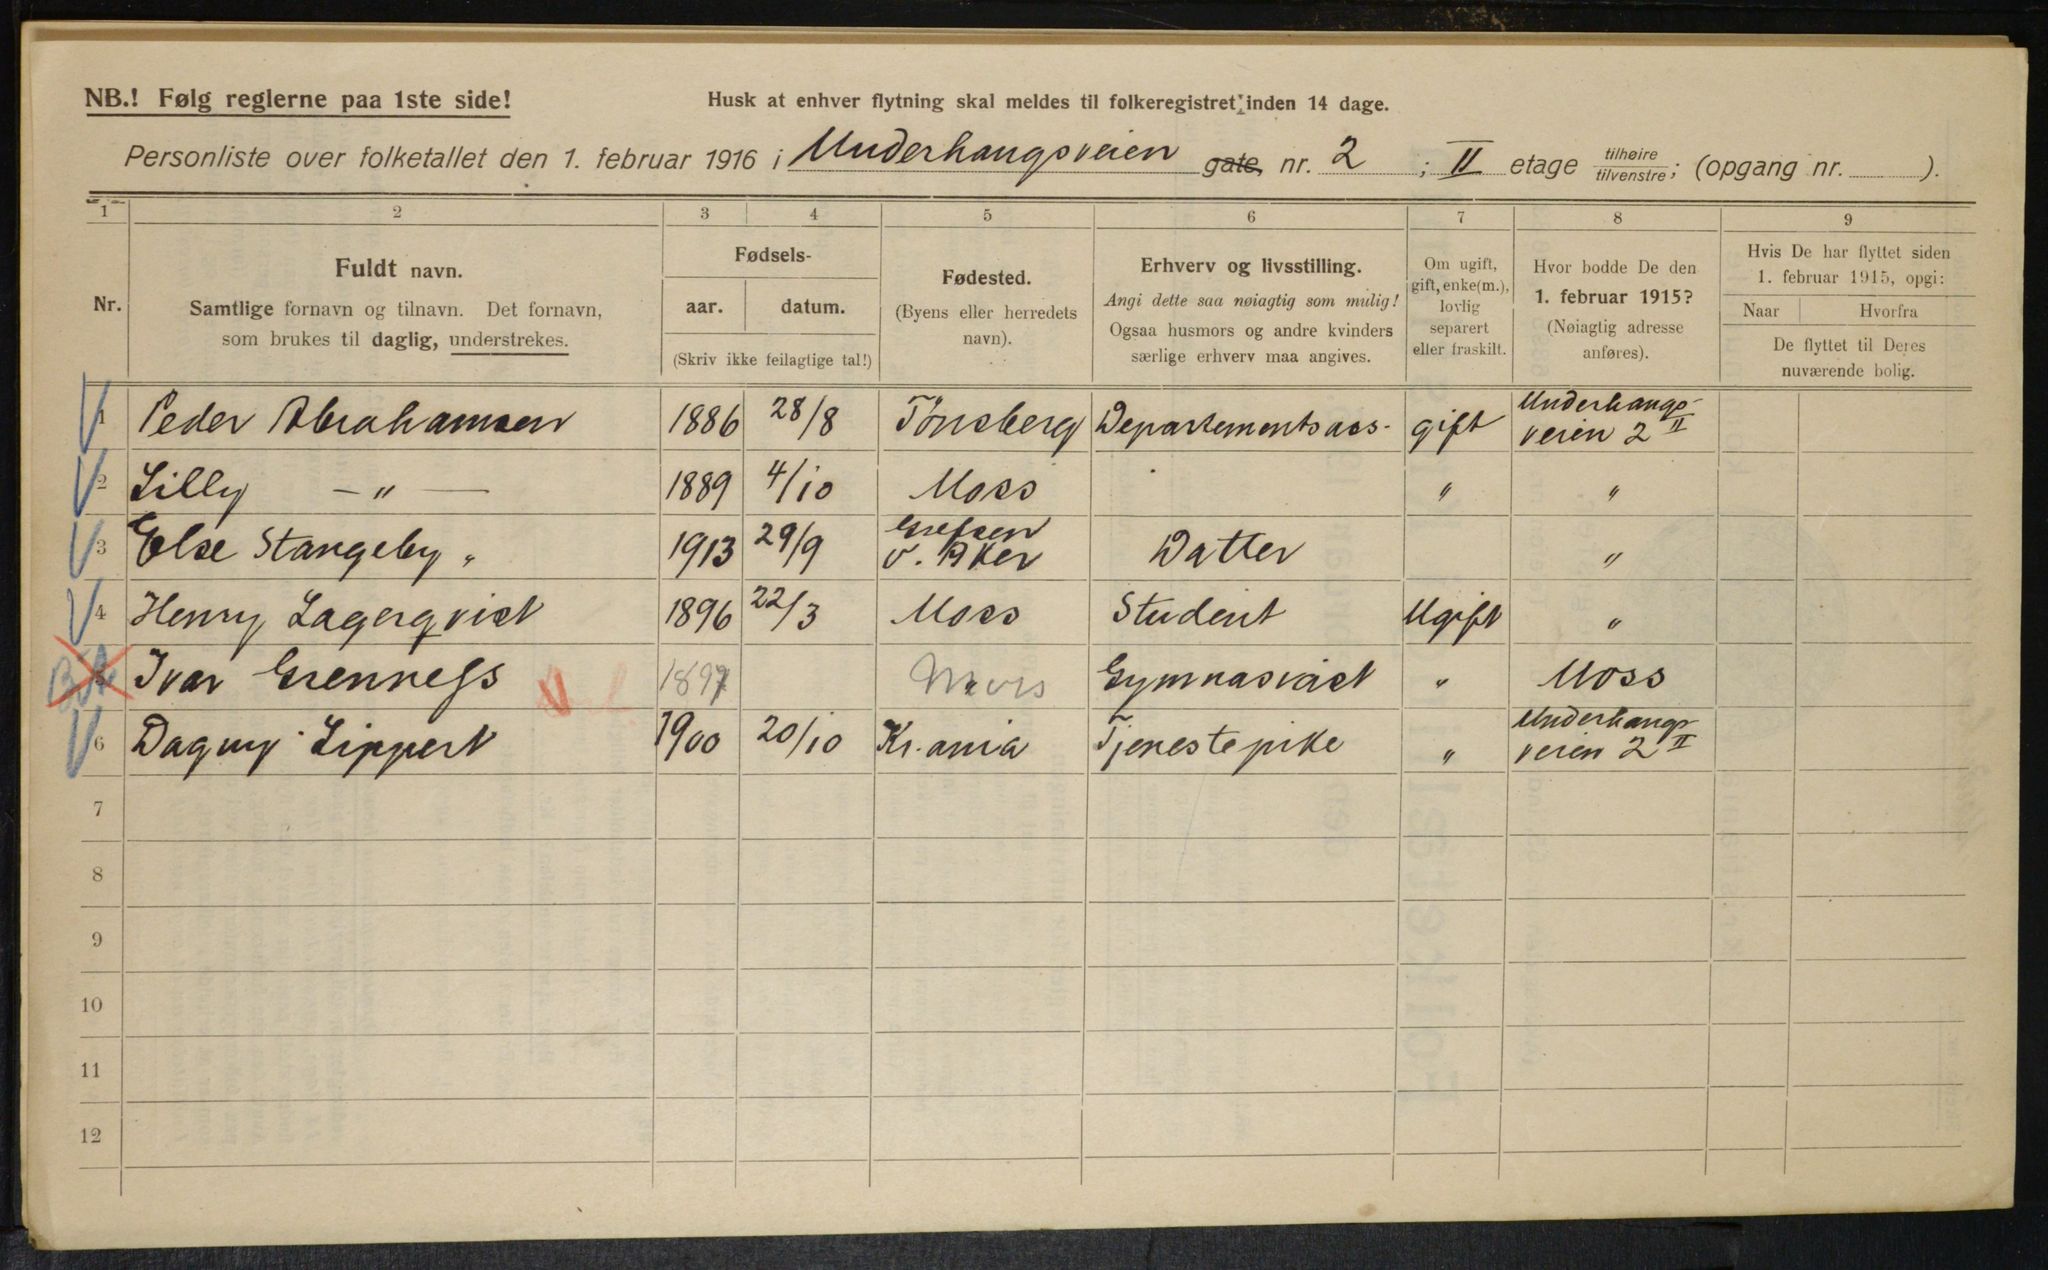 NB.! Følg reglerne paa 1ste side!
Husk at enhver flytning skal meldes til folkeregistret inden 14 dage.
Personliste over folketallet den 1. februar 1916 i Underhaugsveien gate nr. 2 ; II etage tilhøire tilvenstre; (opgang nr. ).
1 2 3 4 5 6 7 8 9
Nr.
Fuldt navn.
Samtlige fornavn og tilnavn. Det fornavn,
som brukes til daglig, understrekes.
Fødsels-
aar. datum.
(Skriv ikke feilagtige tal!)
Fødested.
(Byens eller herredets
navn).
Erhverv og livsstilling.
Angi dette saa nøiagtig som mulig!
Ogsaa husmors og andre kvinders
særlige erhverv maa angives.
Om ugift,
gift, enke(m.),
lovlig
separert
eller fraskilt.
Hvor bodde De den
1. februar 1915?
(Nøiagtig adresse
anføres).
Hvis De har flyttet siden
1. februar 1915, opgi:
Naar Hvorfra
De flyttet til Deres
nuværende bolig.
1 Peder Abrahamsen 1886 28/8 Tönsberg Departementsass- gift Underhaugs-
veien 2 II
2 Lilly — " — 1889 4/10 Moss " "
3 Else Stangeby " 1913 29/9 Grefsen
v. Aker Datter "
4 Henry Lagerqvist 1896 22/3 Moss Student Ugift "
Ivar Grenness 1897 Gymnasiast " Moss
6 Dagny Lippert 1900 20/10 Kr.ania Tjenestepike " Underhaugs-
veien 2 II
7
8
9
10
11
12